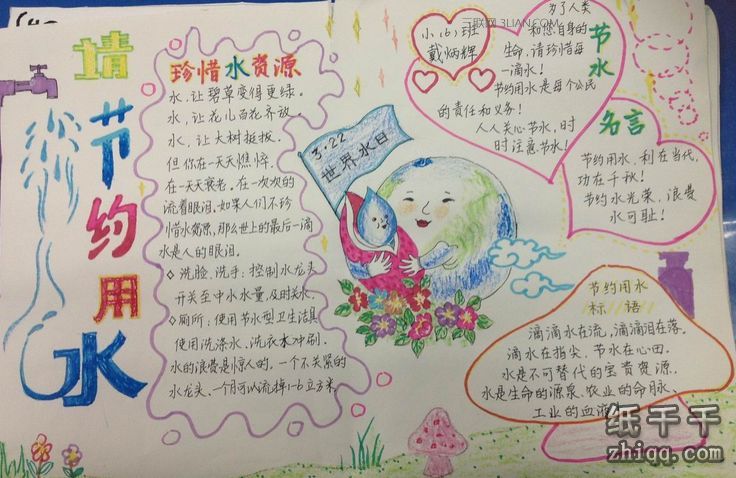 三联网 3LIAN.COM
请节约用水
珍惜水资源
水，让碧草变得更绿。
水，让花儿百花齐放。
水，让大树挺拔。
但你在一天天憔悴。
在一天天衰老。在一次次的
流着眼泪。如果人们不珍
惜水资源，那么世上的最后一滴
水是人的眼泪。
◇洗脸、洗手：控制水龙头
开关至中水水量，及时关水。
◇厕所：使用节水型卫生洁具
使用洗涤水、洗衣水冲刷。
水的浪费是惊人的，一个不关紧的
水龙头，一个月可以流掉1-6立方米
3.22
世界水日
小(6)班
戴炳辉
为了人类
和您自身的
生命，请珍惜每
一滴水！
节约用水是每个公民
的责任和义务！
人人关心节水，时
时注意节水！
节水
名言
节约用水，利在当代，
功在千秋！
节约水光荣，浪费
水可耻！
节约用水
标语
滴滴水在流，滴滴泪在落。
滴水在指尖，节水在心田。
水是不可替代的宝贵资源。
水是生命的源泉、农业的命脉、
工业的血液
纸千千
zhiqq.com